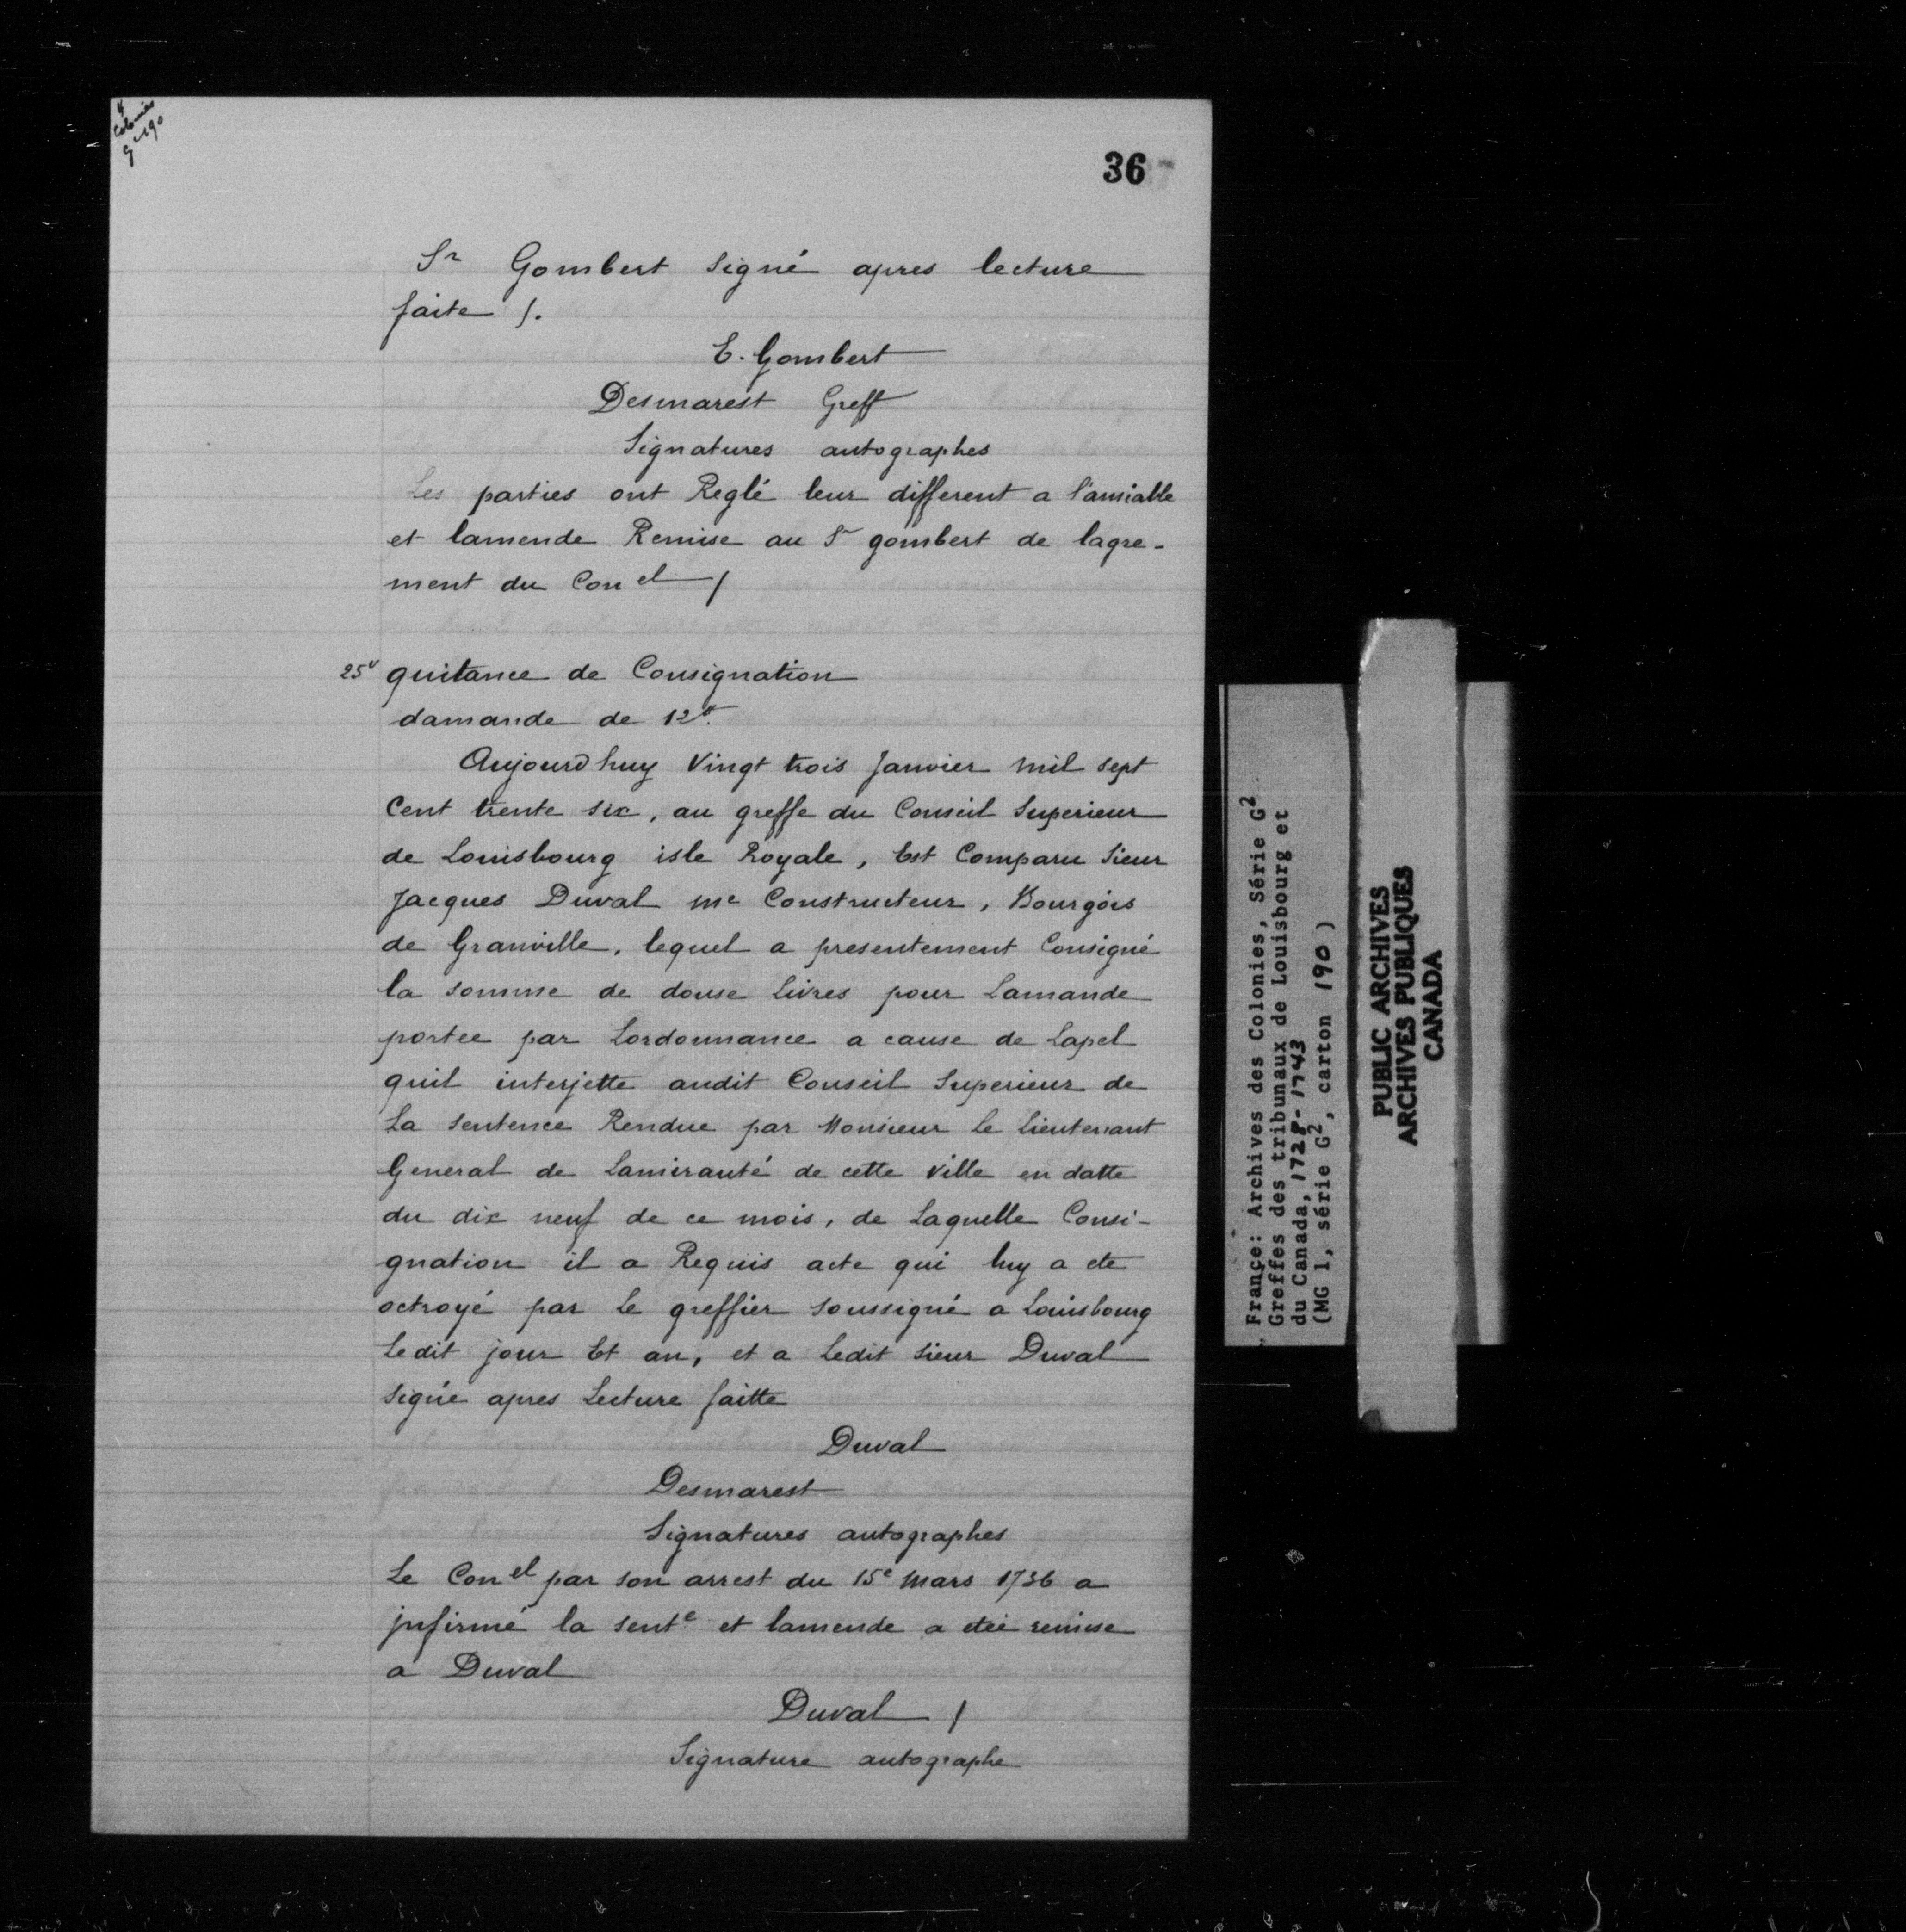 Colonies
G² 190
36
Sr Gombert signé apres lecture
faite /.
E. Gombert
Desmarest Greff
Signatures autographes
Les parties ont Reglé leur different a l'amiable
et lamende Remise au Sr gombert de lagre-
ment du Conel /
25v quitance de Consignation
damande de 12#.
Aujourdhuy Vingt trois Janvier mil sept
Cent trente six, au greffe du Conseil Superieur
de Louisbourg isle Royale, Est Comparu Sieur
Jacques Duval me Constructeur, Bourgois
de Granville, lequel a presentement Consigné
la somme de douse Livres pour Lamande
portee par Lordonnance a cause de Lapel
quil interjette audit Conseil Superieur de
La sentence Rendue par Monsieur le Lieutenant
General de Lamirauté de cette Ville en datte
du dix neuf de ce mois, de Laquelle Consi-
gnation il a Requis acte qui luy a ete
octroyé par le greffier soussigné a Louisbourg
Ledit jour Et an, et a Ledit Sieur Duval
signé apres Lecture faitte
Duval
Desmarest
Signatures autographes
Le Conel par son arrest du 15e Mars 1736 a
jnfirmé la sente et lamende a eteé remise
a Duval
Duval /
Signature autographe
France: Archives des Colonies, Série G2
Greffes des tribunaux de Louisbourg et
du Canada, 1728-1743
(MG 1, série G2, carton 190)
PUBLIC ARCHIVES
ARCHIVES PUBLIQUES
CANADA